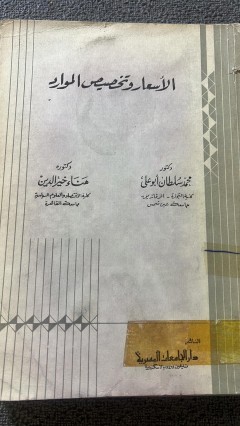 الأسعار وتخصيص الموارد
دكتور
محمد سلطان أبو على
كلية التجارة -
جامعة عين شمس
دكتورة
هناء خير الدين
كلية الاقتصاد والعلوم السياسية
جامعة القاهرة
الناشر
دار الجامعات المصرية